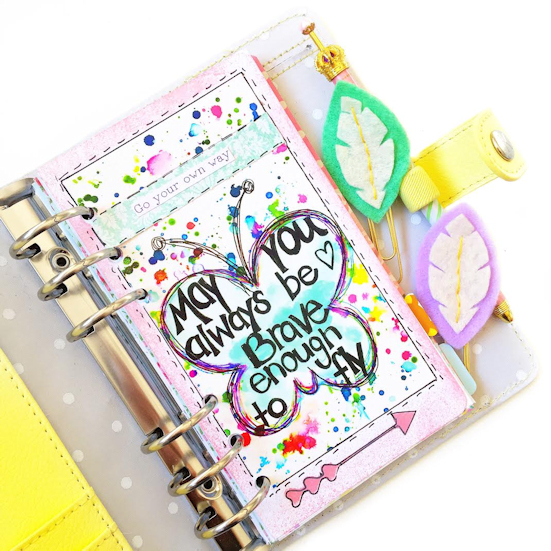 Go your own way
May You
always be
Brave
enough
to fly